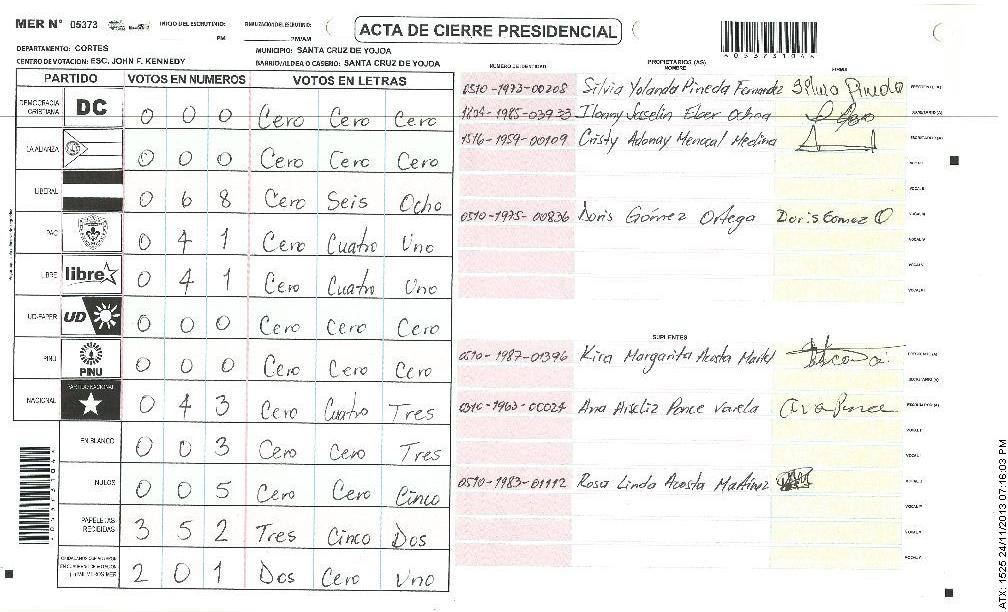 MER N° 05373 INICIO DEL ESCRUTINIO: PM FINALIZACION DEL ESCRUTINIO: PM/AM
ACTA DE CIERRE PRESIDENCIAL
DEPARTAMENTO: CORTES MUNICIPIO: SANTA CRUZ DE YOJOA
CENTRO DE VOTACION: ESC. JOHN F. KENNEDY BARRIO/ALDEA O CASERIO: SANTA CRUZ DE YOJOA
PARTIDO VOTOS EN NUMEROS VOTOS EN LETRAS
DEMOCRACIA CRISTIANA DC 0 0 0 Cero Cero Cero
LA ALIANZA 0 0 0 Cero Cero Cero
LIBERAL 0 6 8 Cero Seis Ocho
PAC 0 4 1 Cero Cuatro Uno
LIBRE libre 0 4 1 Cero Cuatro Uno
UD-FAPER UD 0 0 0 Cero Cero Cero
PINU PINU 0 0 0 Cero Cero Cero
NACIONAL PARTIDO NACIONAL 0 4 3 Cero Cuatro Tres
EN BLANCO 0 0 3 Cero Cero Tres
NULOS 0 0 5 Cero Cero Cinco
PAPELETAS RECIBIDAS 3 5 2 Tres Cinco Dos
2 0 1 Dos Cero Uno
NUMERO DE IDENTIDAD PROPIETARIOS (AS) NOMBRE FIRMA
0510-1973-00208 Silvia Yolanda Pineda Fernandez Silvia Pineda
1804-1985-03933 Ilonny Josselin Elber Ochoa
1516-1959-00109 Cristy Adonay Menocal Medina
0510-1975-00836 Doris Gómez Ortega Doris Gomez O
SUPLENTES
0510-1987-01396 Kira Margarita Acosta
0510-1963-00027 Ana Ponce Varela Ana Ponce
0510-1983-01112 Rosa Linda Acosta Martinez
ATX: 1525 24/11/2013 07:16:03 PM